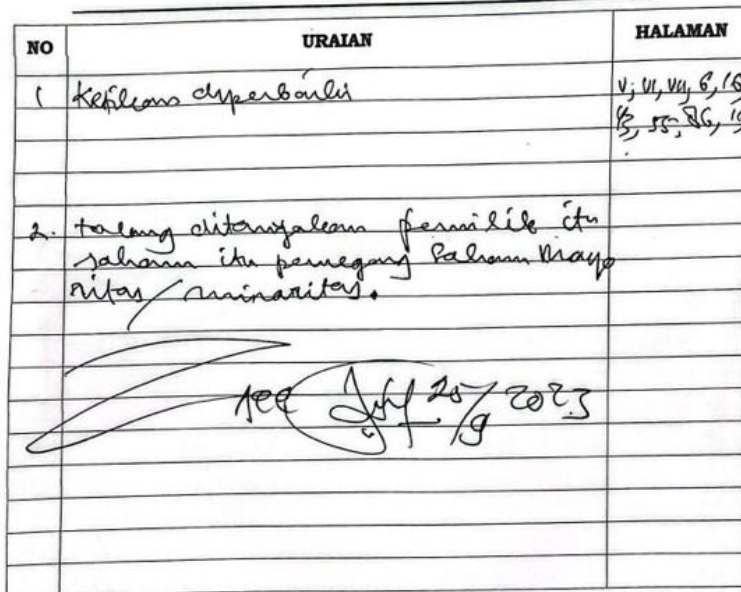 NO URAIAN HALAMAN
1 Ketikan diperbaiki v, vi, vii, 6, 16
55, 86,
2. tolong ditanyakan pemilik itu
saham itu pemegang saham mayo
ritas / minoritas.
acc 25/9 2023